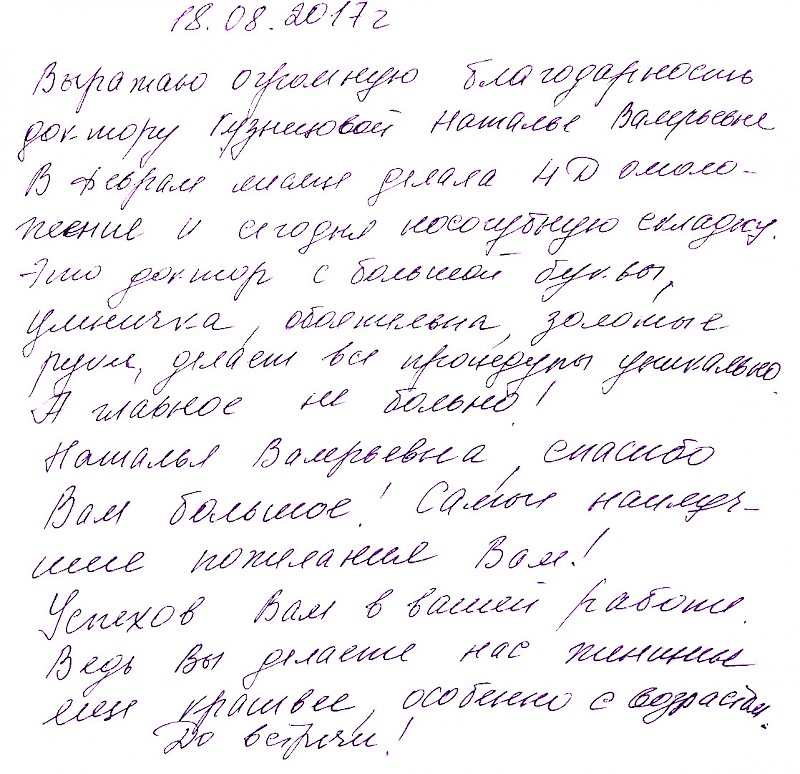 18.08.2017г
Выражаю огромную благодарность
доктору Кузнецовой Наталье Валерьевне
В феврале месяце делала 4D омоло-
жение и сегодня носогубную складку.
Это доктор с большой буквы,
умничка, обаятельна, золотые
руки, делает все процедуры уникально.
А главное не больно!
Наталья Валерьевна, спасибо
Вам большое! Самые наилуч-
шие пожелания Вам!
Успехов Вам в вашей работе.
Ведь Вы делаете нас женщины
еще красивее, особенно с возрастом.
До встречи!